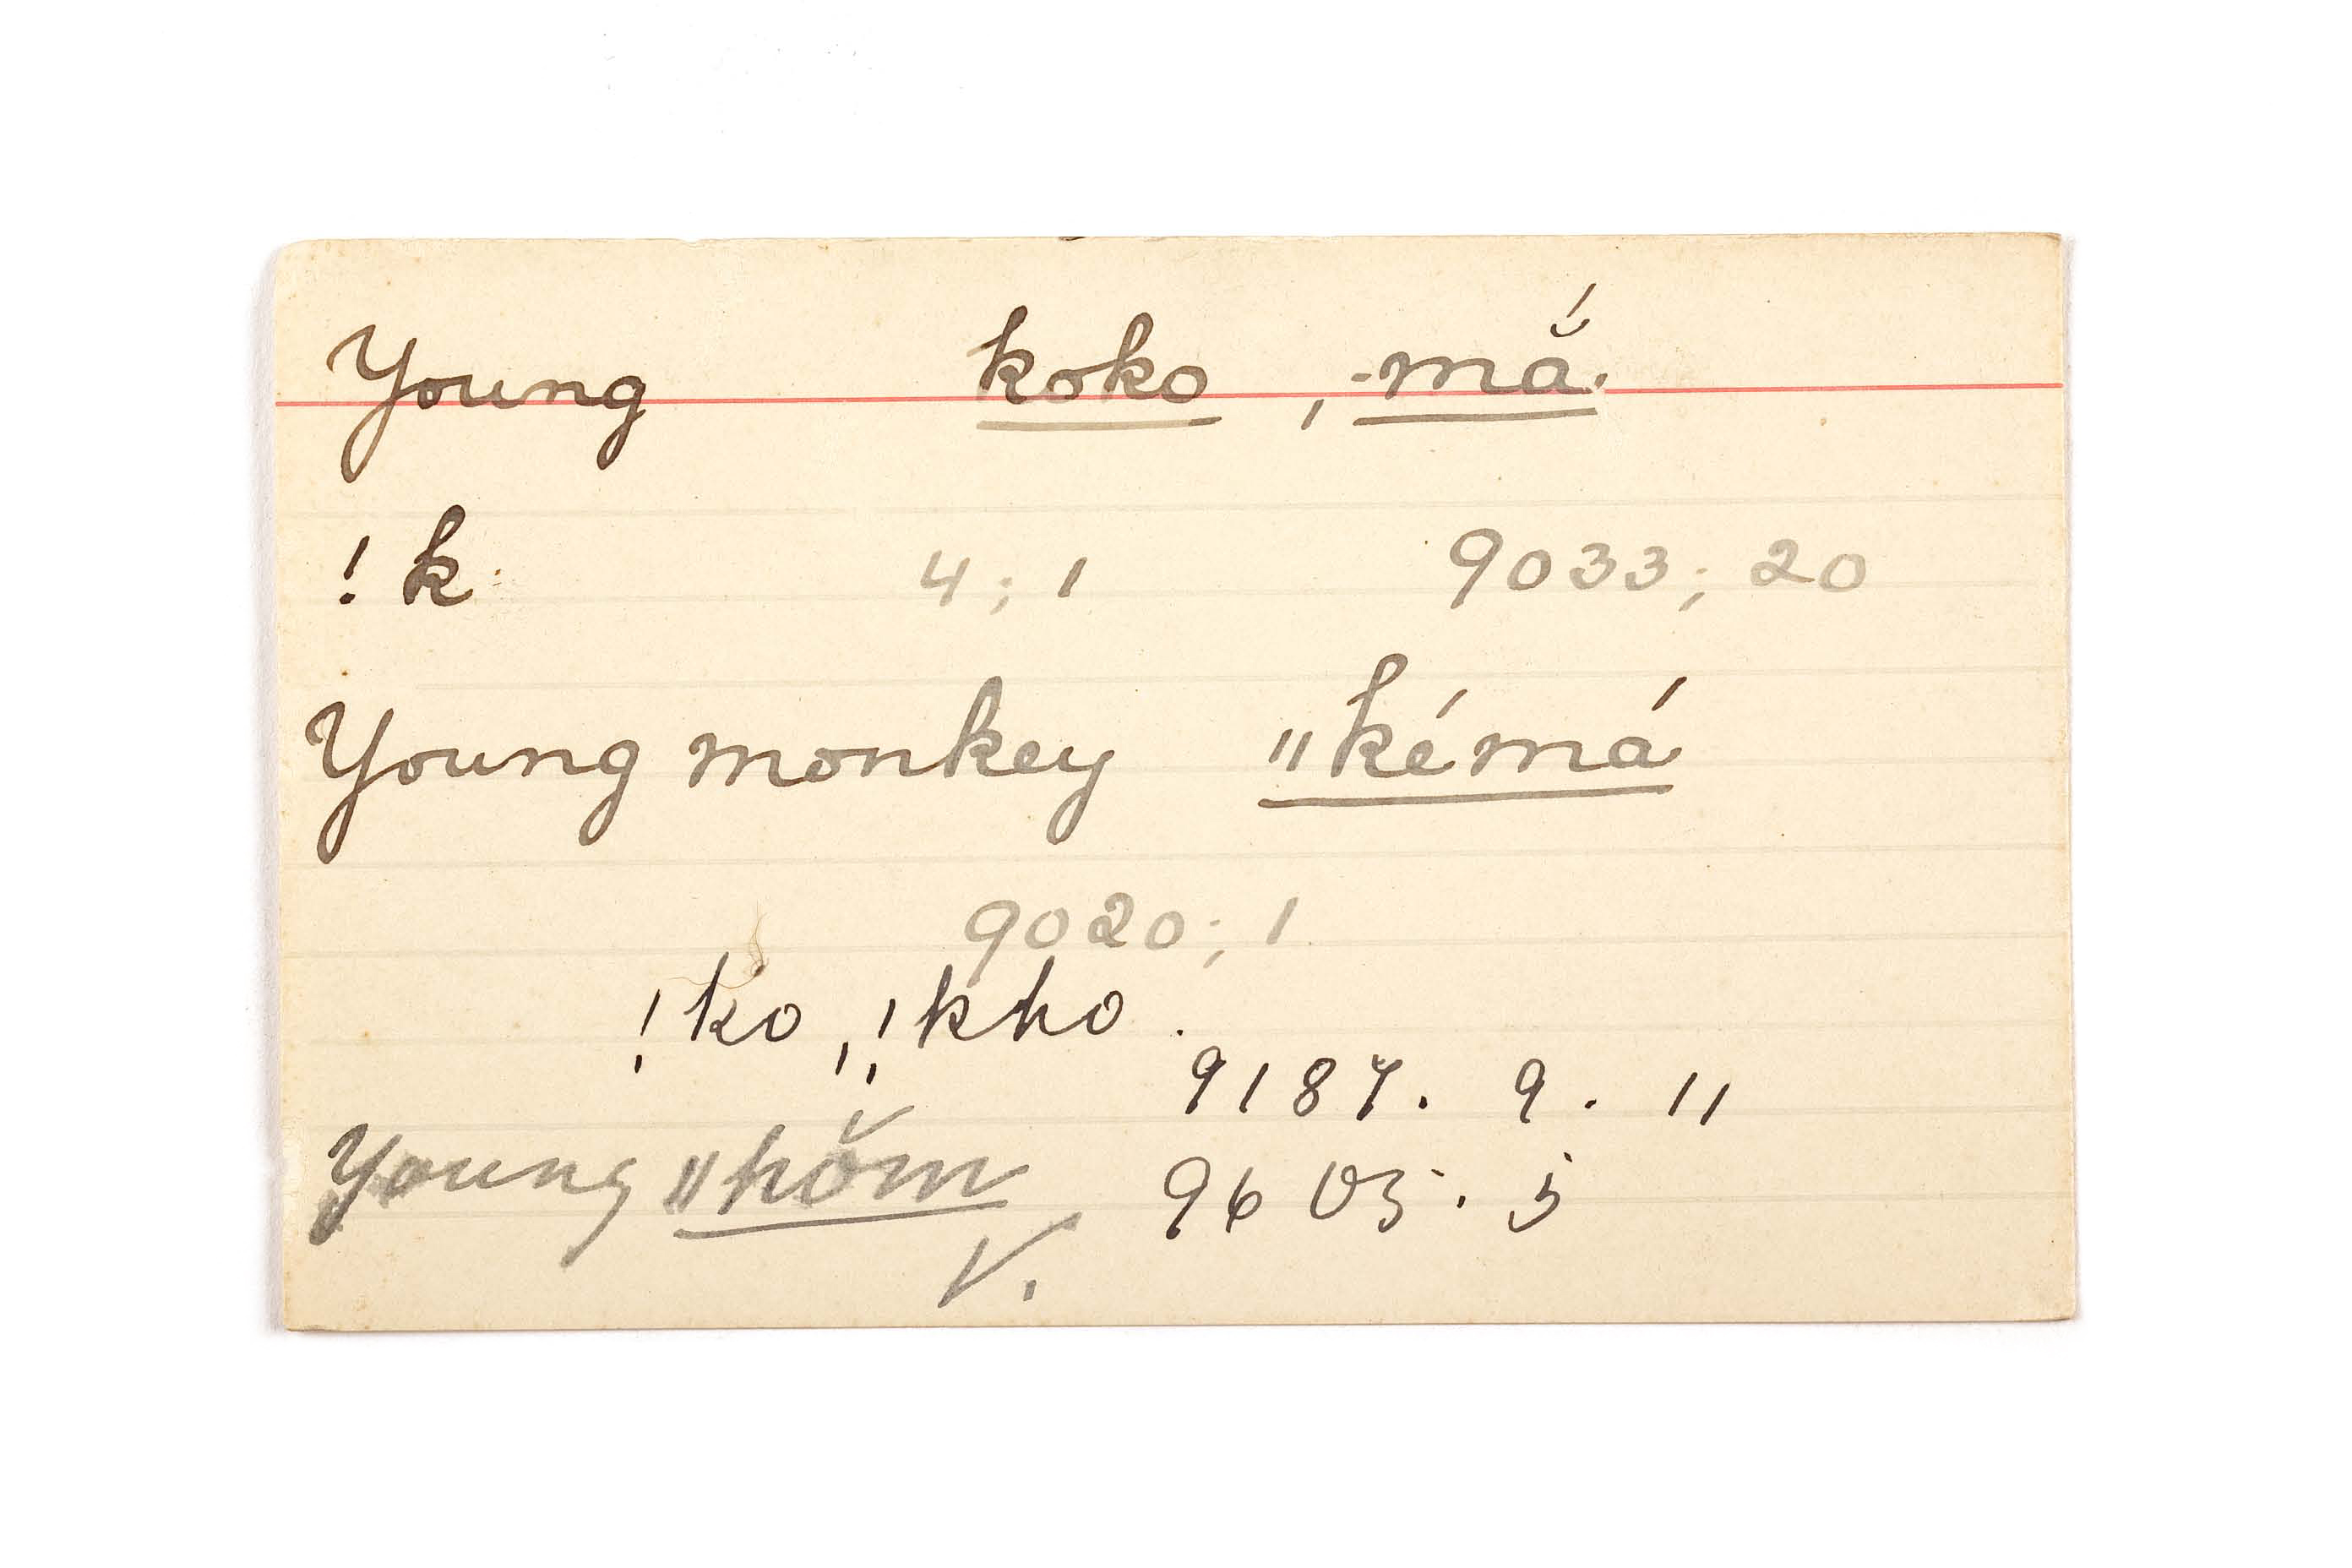 Young koko , -mắ.
!k 4; 1 9033; 20
Young monkey ǁkémá
9020; 1
!ko, !kho.
9187. 9. 11
Young ǁhŏm 9605. 5
V.